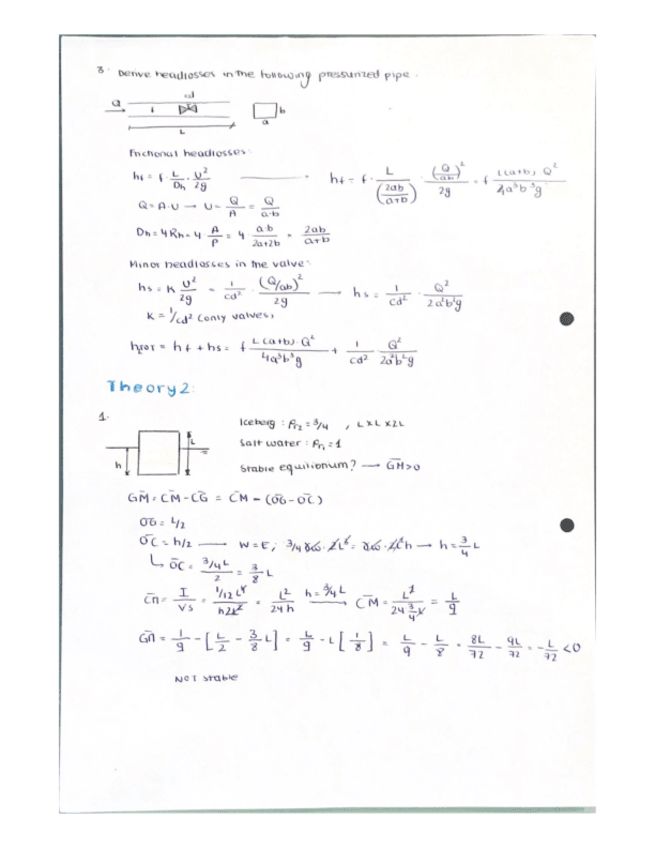 3. Derive headlosses in the following pressurized pipe.
Q
cd
L
a
b
Frictional headlosses:
hf = f · L/Dh · U²/2g → hf = f · L/(2ab/(a+b)) · (Q/ab)²/2g = f L(a+b) · Q²/4a³b³g
Q = A·U → U = Q/A = Q/a·b
Dh = 4Rh = 4 A/P = 4 a·b/2a+2b = 2ab/a+b
Minor headlosses in the valve:
hs = K U²/2g = 1/cd² · (Q/ab)²/2g → hs = 1/cd² · Q²/2a²b²g
K = 1/cd² (only valves)
hTOT = hf + hs = f L(a+b)·Q²/4a³b³g + 1/cd² Q²/2a²b²g
Theory 2:
1.
Iceberg : ρr2 = 3/4 , L x L x 2L
Salt water : ρr1 = 1
Stable equilibrium? → GM > 0
h
L
GM = CM - CG = CM - (OG - OC)
OG = L/2
OC = h/2 → W = E; 3/4 γw · 2L³ = γw · 2L²h → h = 3/4 L
OC = 3/4L/2 = 3/8 L
CM = I/Vs = 1/12 L⁴/h2L² = L²/24h h = 3/4L → CM = L²/24 3/4 L = L/9
GM = 1/9 - [L/2 - 3/8 L] = L/9 - L[1/8] = L/9 - L/8 = 8L/72 - 9L/72 = -L/72 < 0
Not stable